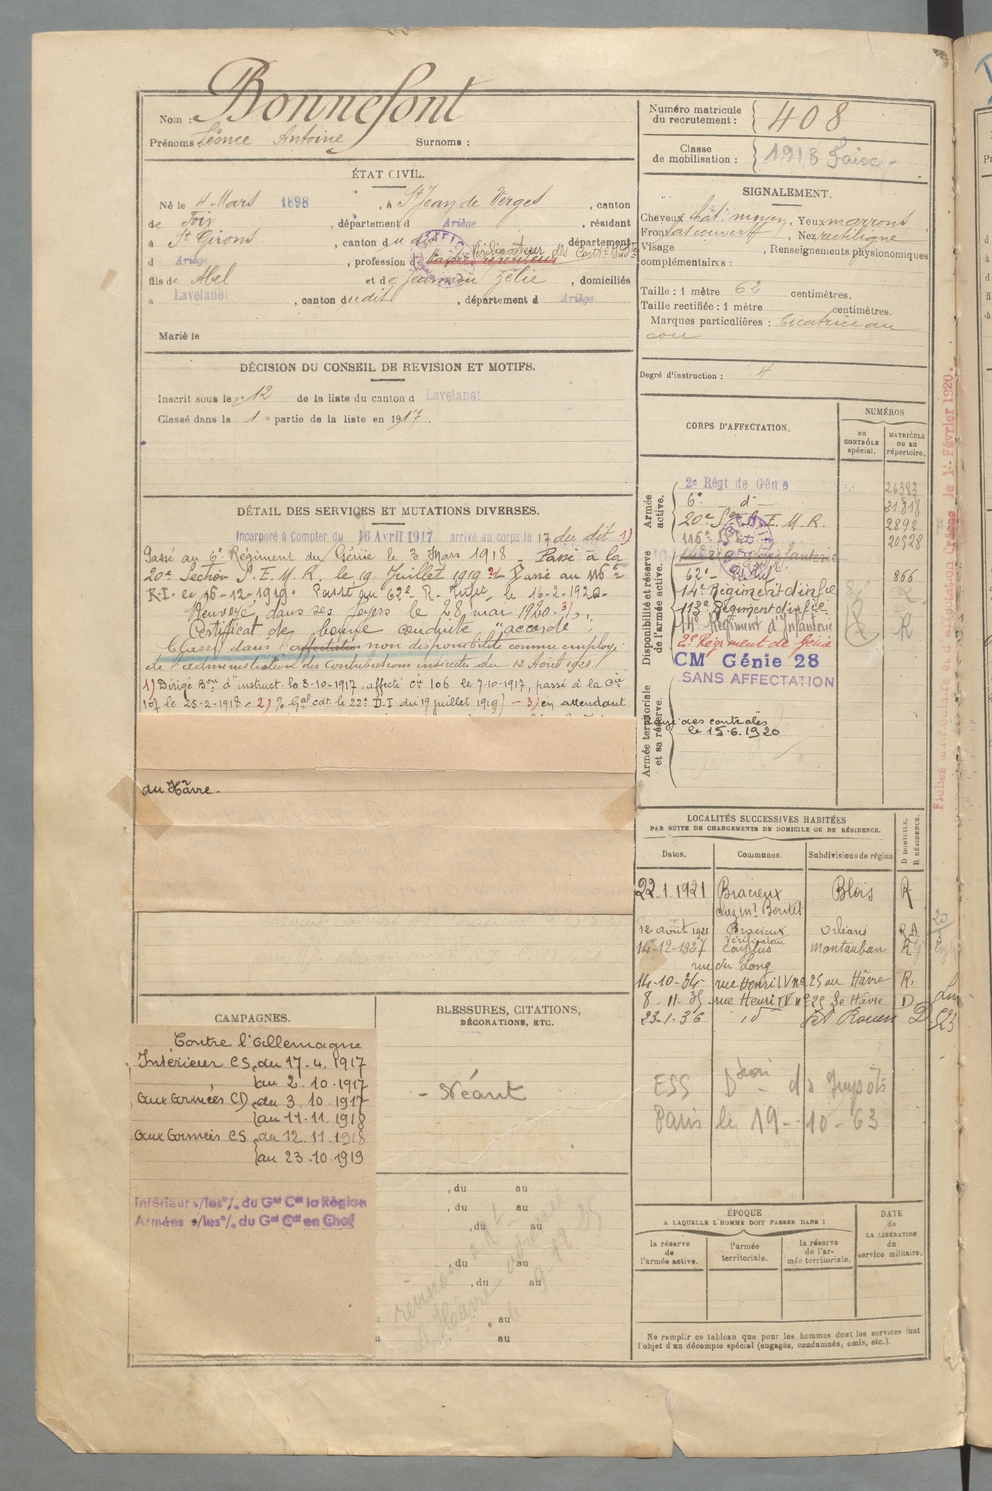 Nom : Bonnefont
Prénoms Léonce Antoine Surnoms :
Numéro matricule du recrutement : 408
Classe de mobilisation : 1913
ÉTAT CIVIL.
Né le 4 Mars 1898, à St Jean de Verges, canton
de Foix, département d Ariège, résidant
à St Girons, canton du dit, département
d Ariège, profession de
fils de Abel et de Zélie, domiciliés
à Lavelanet, canton dudit, département d Ariège
Marié le
SIGNALEMENT.
Cheveux chât. moyen, Yeux marrons
Front, Nez rectiligne
Visage, Renseignements physionomiques
complémentaires :
Taille : 1 mètre 62 centimètres.
Taille rectifiée : 1 mètre centimètres.
Marques particulières : Cicatrice au
cou
Degré d'instruction : 4
DÉCISION DU CONSEIL DE REVISION ET MOTIFS.
Inscrit sous le n° 12 de la liste du canton d Lavelanet
Classé dans la 1e partie de la liste en 1917.
DÉTAIL DES SERVICES ET MUTATIONS DIVERSES.
Incorporé à Compter du 16 Avril 1917 arrivé au corps le 17 du dit 1)
Passé au 6e Régiment du Génie le 3 Mars 1918. Passé à la
20e Section S.E.M.R. le 19 Juillet 1919 2) Passé au 116e
R.I. le 16-12-1919. Passé au 62e R. Infie le 16-2-1920.
Renvoyé dans ses foyers le 28 mai 1920. 3)
Certificat de bonne conduite "accordé"
Classé dans l'affectation non disponibilité comme employé
de l'administration des Contributions indirectes du 12 Août 1921
1) Dirigé Bon d'instruct. le 3-10-1917, affecté Cie 106 le 7-10-1917, passé à la Cie
107 le 25-2-1918 - 2) % Gal cdt. le 22e D.I du 19 juillet 1919) - 3) en attendant
du Hâvre.
CORPS D'AFFECTATION.
NUMÉROS
au CONTRÔLE spécial.
MATRICULE OU AU répertoire.
Armée active.
2e Régt de Génie 26383
6e d° 31818
20e Son S.E.M.R. 2892
116e 20528
Disponibilité et réserve de l'armée active.
62e 866
14e Régiment d'infie
113e Régiment d'infie
Régiment d'Infanterie R
2e Régiment de Génie
CM Génie 28
SANS AFFECTATION
Armée territoriale et sa réserve.
des contrôles
le 15.6.1920
LOCALITÉS SUCCESSIVES HABITÉES
PAR SUITE DE CHANGEMENTS DE DOMICILE OU DE RÉSIDENCE.
Dates. Communes. Subdivisions de région D DOMICILE. R RÉSIDENCE.
22.1.1921 Bracieux Blois R
chez Mr Boutet
12 août 1921 Bracieux Orléans
14-12-1927 Caylus Montauban R
rue du Long
14-10-34 rue Henri IV n° 25 au Hâvre R.
8-11-35 rue Henri IV n° 25 Le Hâvre D
23-1-36 id Rouen D
ESS Dtion ds Impôts
Paris le 19-10-63
CAMPAGNES.
Contre l'Allemagne
Intérieur CS, du 17.4.1917
au 2.10.1917
aux armées CD, du 3.10.1917
au 11.11.1918
aux armées CS, du 12.11.1918
au 23.10.1919
Intérieur s/les % du Gal Cdt la Région
Armées s/les % du Gal Cdt en Chef
BLESSURES, CITATIONS, DÉCORATIONS, ETC.
- Néant
, du au
, du au
, du au
, du au
, du au
au
au
ÉPOQUE
A LAQUELLE L'HOMME DOIT PASSER DANS :
la réserve de l'armée active.
l'armée territoriale.
la réserve de l'armée territoriale.
DATE de LA LIBÉRATION du service militaire.
Ne remplir ce tableau que pour les hommes dont les services font
l'objet d'un décompte spécial (engagés, condamnés, omis, etc.).